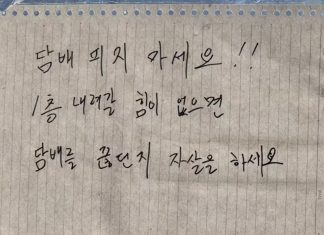 담배 피지 마세요!!
1층 내려갈 힘이 없으면
담배를 끊던지 자살을 하세요